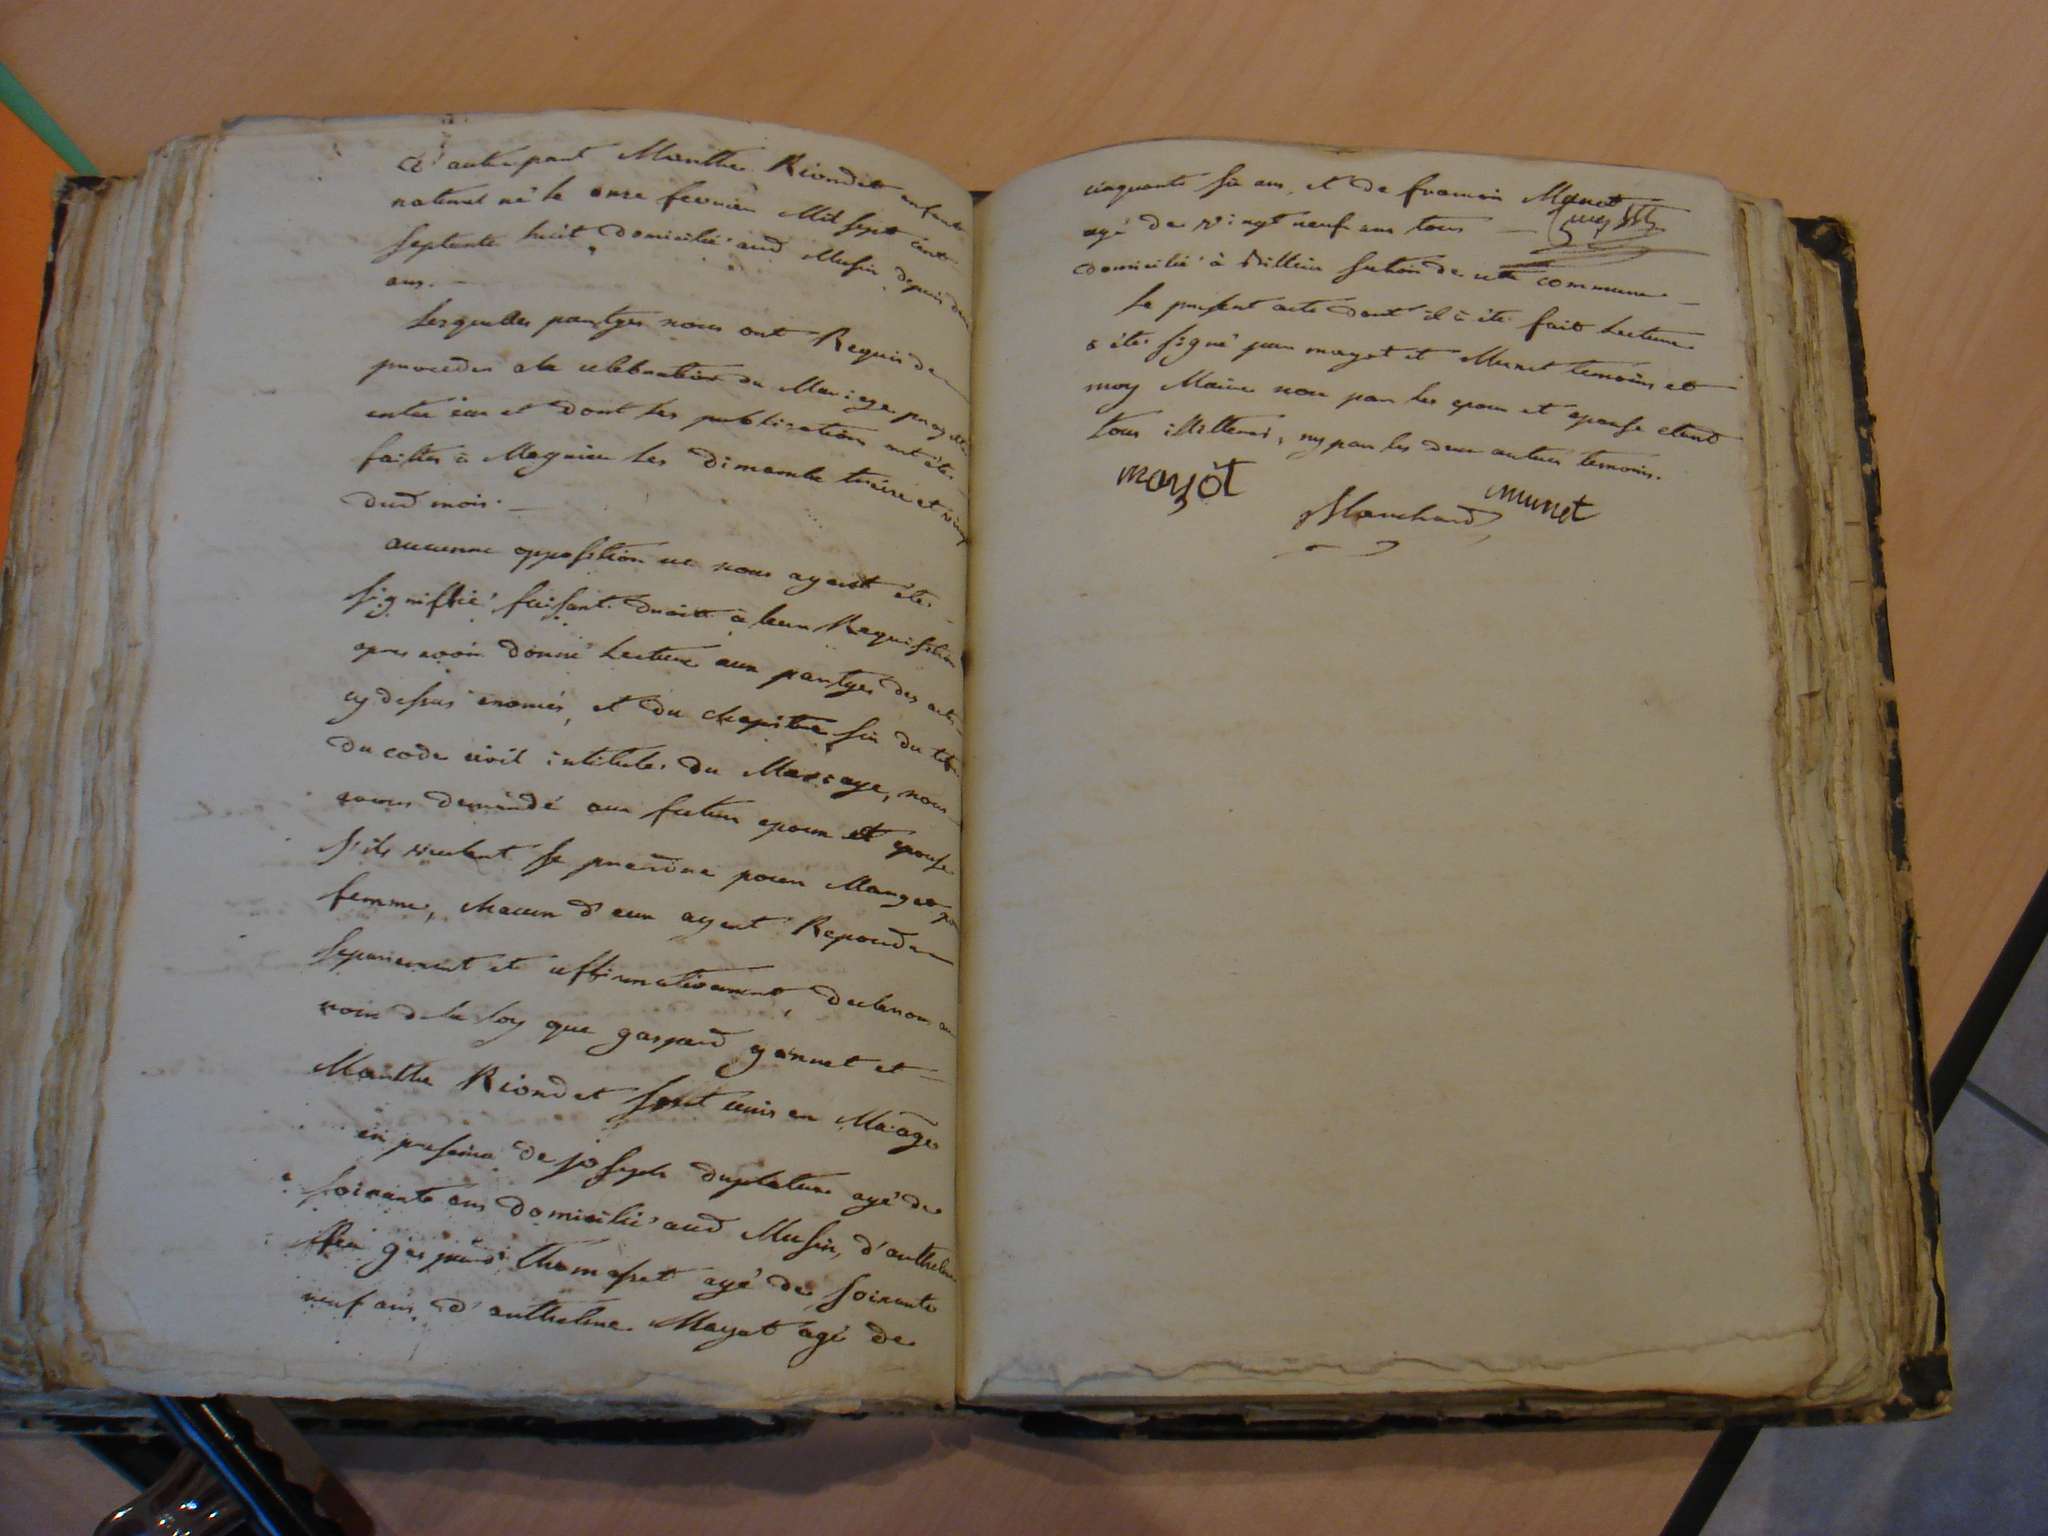 d'autre part Marthe Riondet enfant
naturel né le onze fevrier Mil sept cent
septente huit domicilié aud Musin depuis deux
ans.
Lesquelles partyes nous ont Requis de
proceder a la celebration du Mariage projetté
entre eux et dont les publications ont été
faittes à Magnieu les dimanche treize et vingt
dud mois.
aucunne oppossition ne nous ayent été
signiffié, faisant droitt à leur Requisition
apres avoir donné Lecture aux partyes des actes
cy dessus enomés, et du chapitre six du titre
du code civil intitulé du Mariage, nous
avons demandé aux futur epoux et epouse
s'ils veulent se prendre pour Mary et pour
femme, chacun d'eux ayent Repondu
separement et affirmativement, declarons au
nom de la loy que gaspard gannet et
Marthe Riondet sont unis en Mariage
en presence de joseph duplatre agé de
soixante ans domicilié aud Musin, d'anthelme
feu gaspard thomasset agé de soixante
neuf ans, d'anthelme Mayot agé de
cinquante six ans, et de francois Munet
agé de vingt neuf ans tous
domicilié à Billieu section de cette commune
Le present acte dont il à été fait Lecture
a été signé par mayot et Munet temoins et
moy Maire non par les epoux et epouse etant
tous illitterés, ny par les deux autres temoins.
mayot
munet
Blanchard